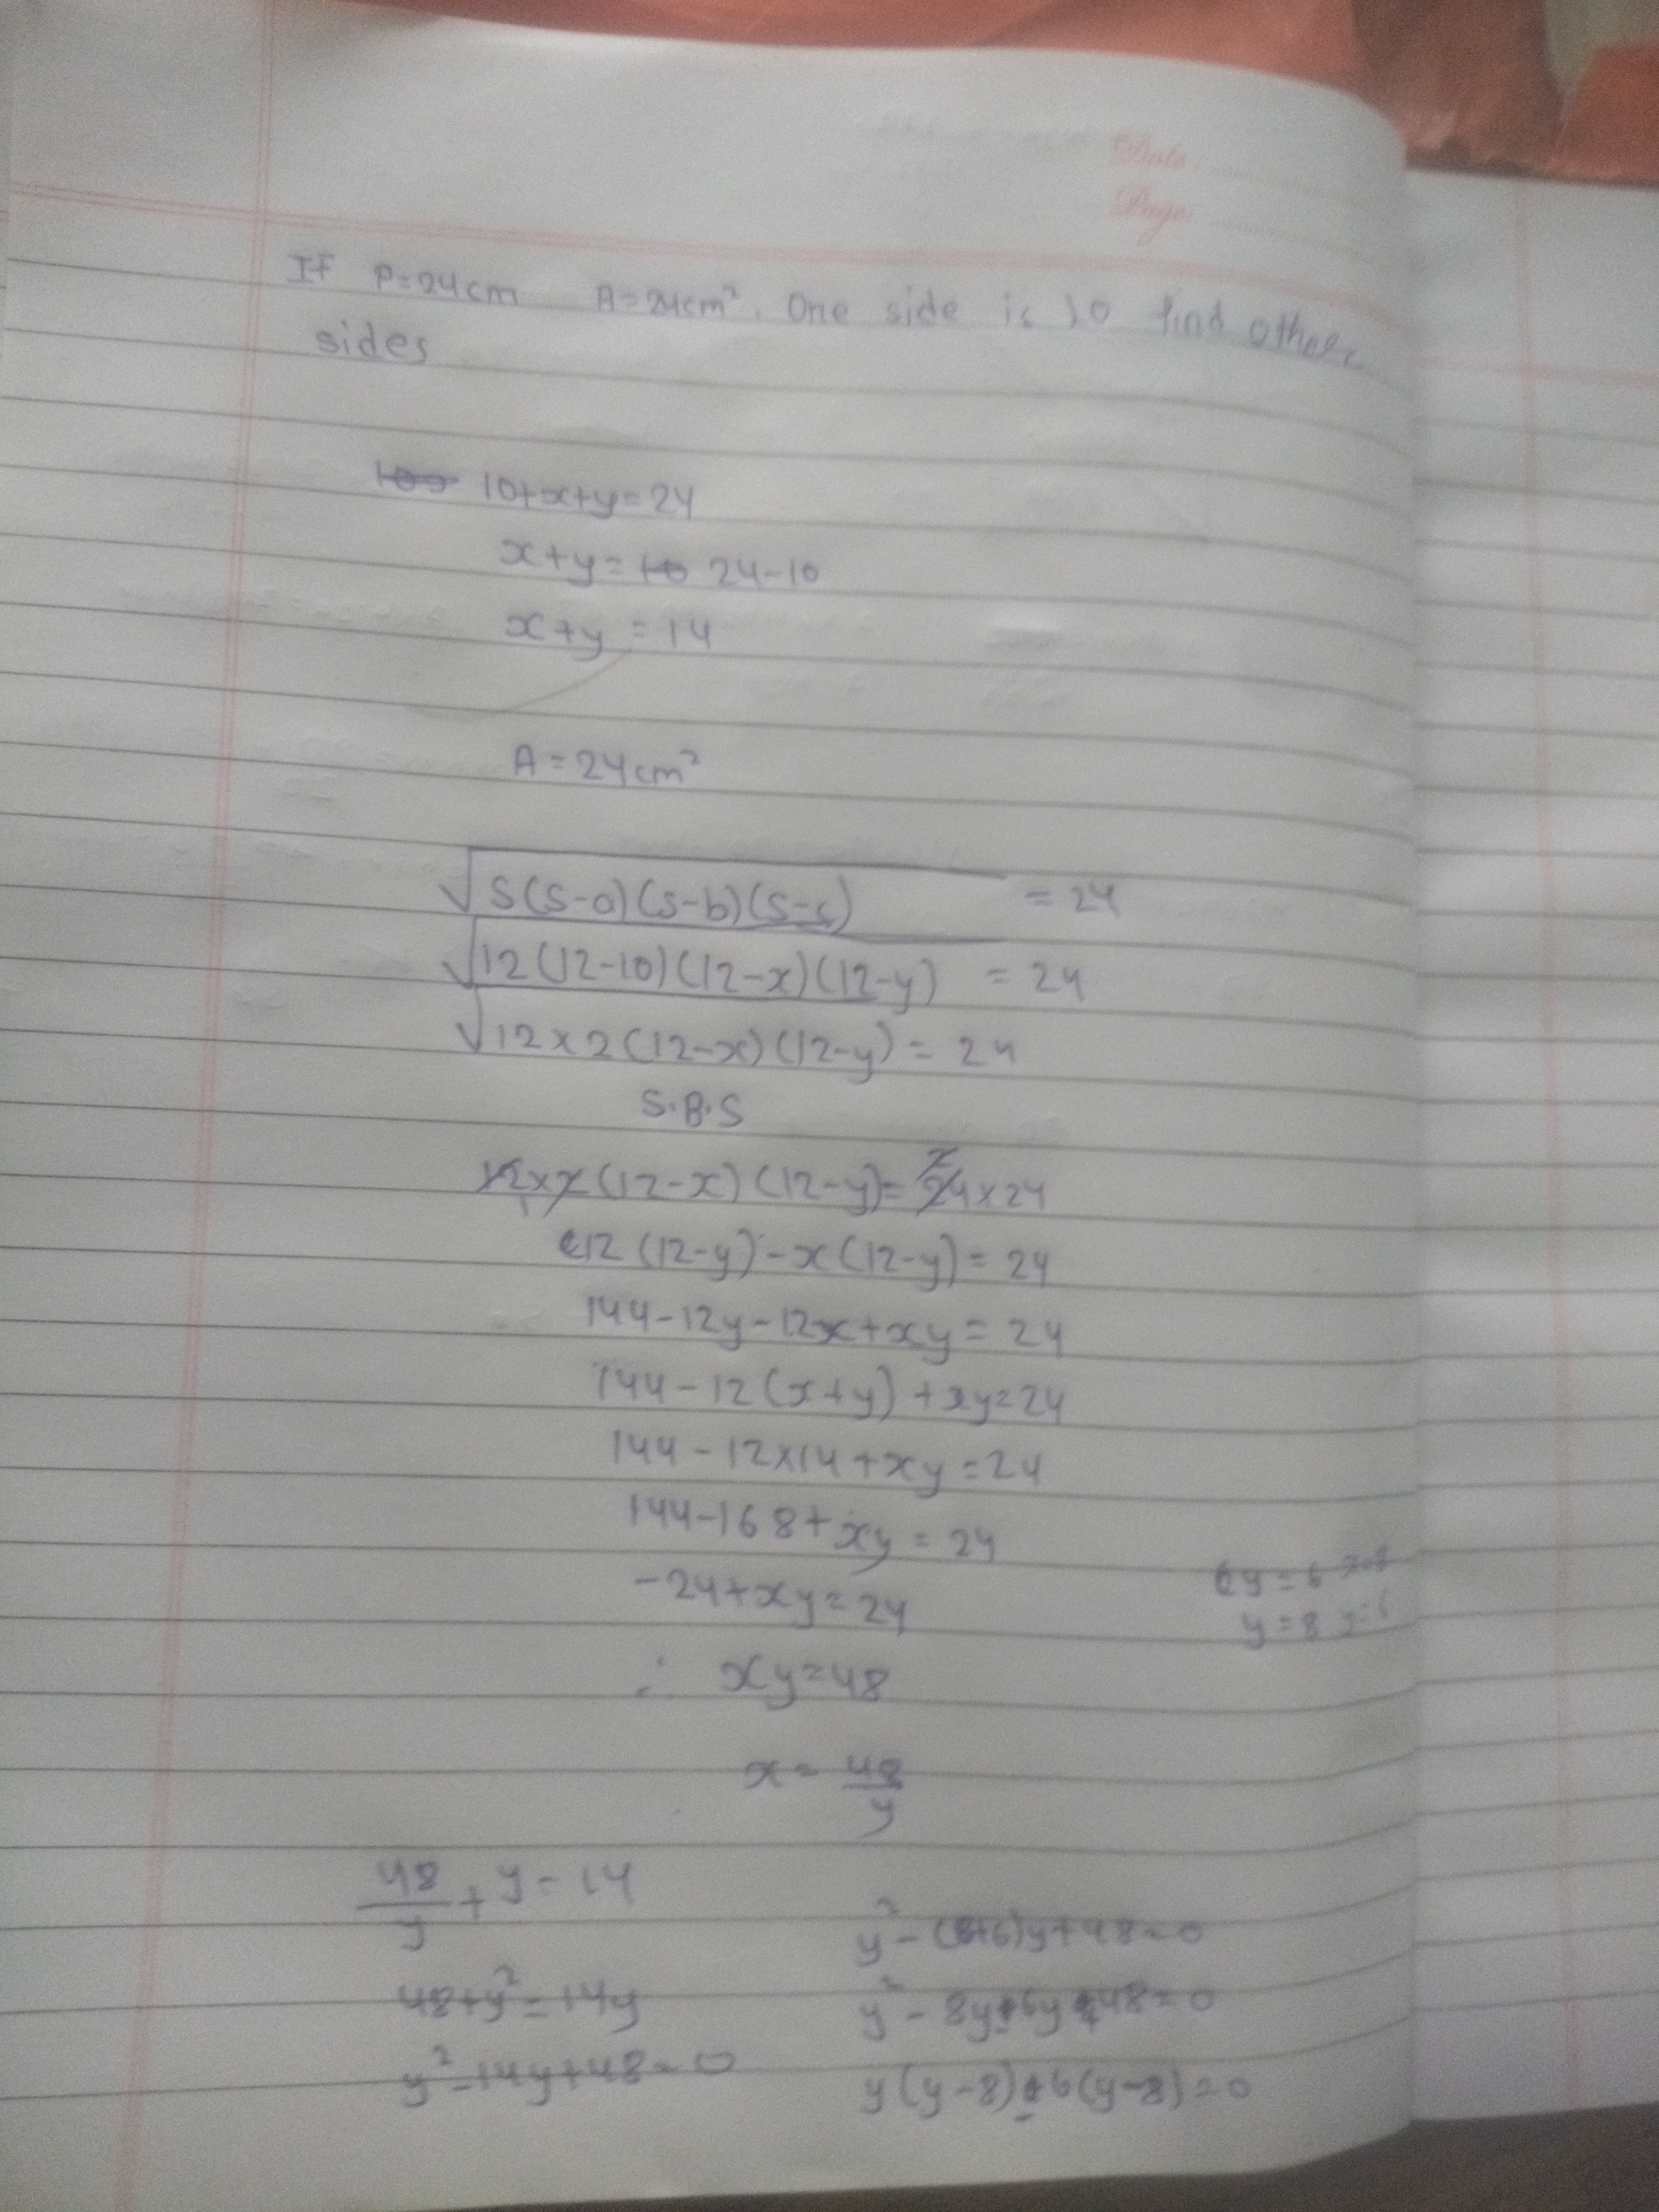 Date
Page
If P=24cm A=24cm². One side is 10 find other
sides
10+x+y=24
x+y= 24-10
x+y=14
A=24cm²
√S(S-a)(S-b)(S-c) = 24
√12(12-10)(12-x)(12-y) = 24
√12×2(12-x)(12-y) = 24
S.B.S
12×2(12-x)(12-y)=24×24
12(12-y)-x(12-y)=24
144-12y-12x+xy=24
144-12(x+y)+xy=24
144-12×14+xy=24
144-168+xy=24
-24+xy=24
y=6
y=8 y=6
∴ xy=48
x=48/y
48/y+y=14
48+y²=14y
y²-14y+48=0
y²-(8+6)y+48=0
y²-8y-6y+48=0
y(y-8)-6(y-8)=0